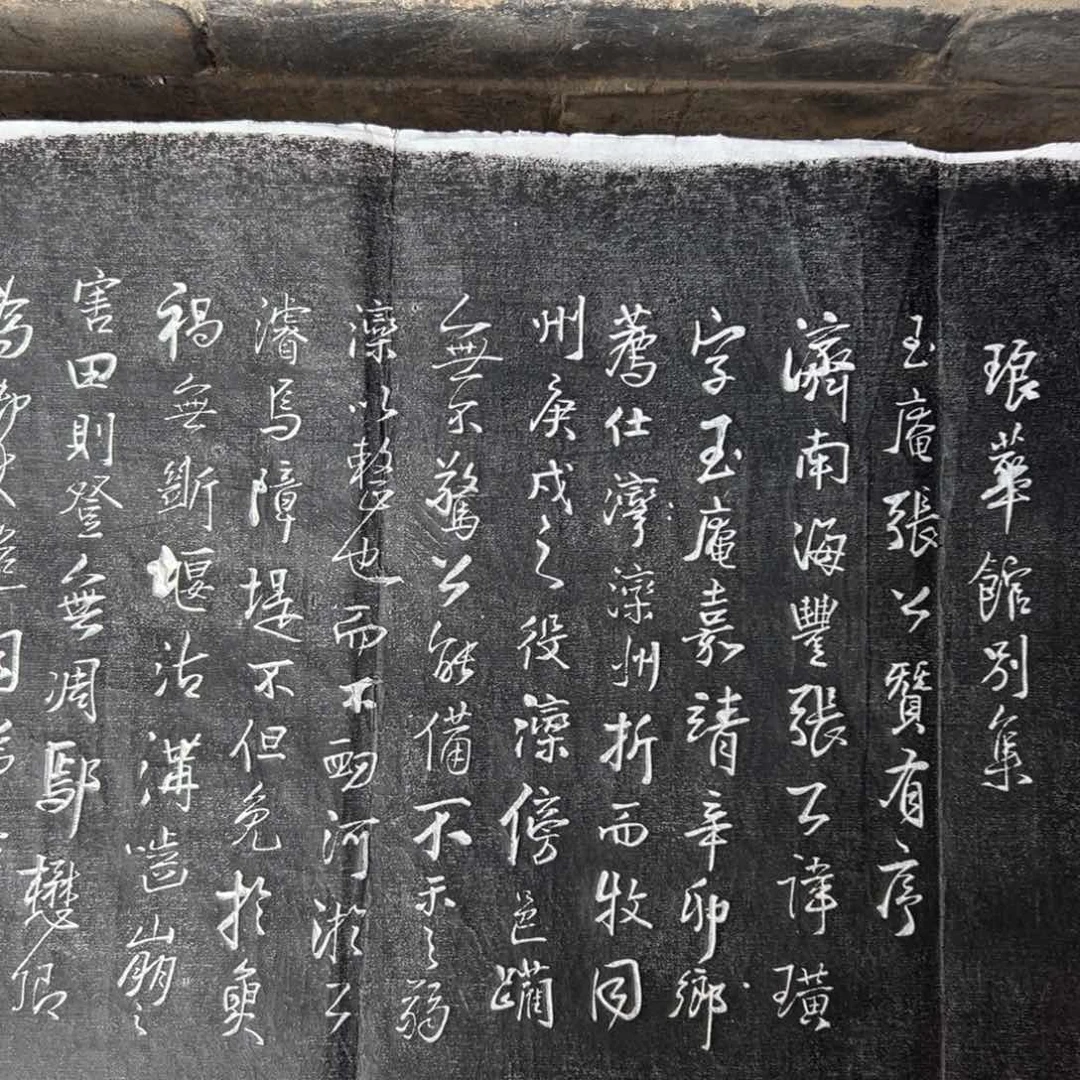 琅華館別集
玉庵張公贊有序
濟南海豐張公諱璜
字玉庵嘉靖辛卯鄉
薦仕灤州折而牧同
州庚戌之役灤傍邑躪
無不驚公能備不示之弱
灤以整也而不罰河淤公
濬焉障堤不但免於魚
禍無斷堰沽溝嚙崩之
害田則登無凋鄢懋卿